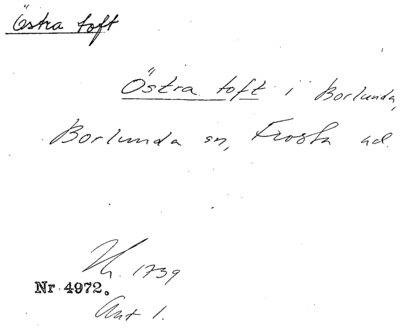 Östra toft
Östra toft i Borlunda,
Borlunda sn, Frosta hd.
1739
Nr 4972.
Akt 1.